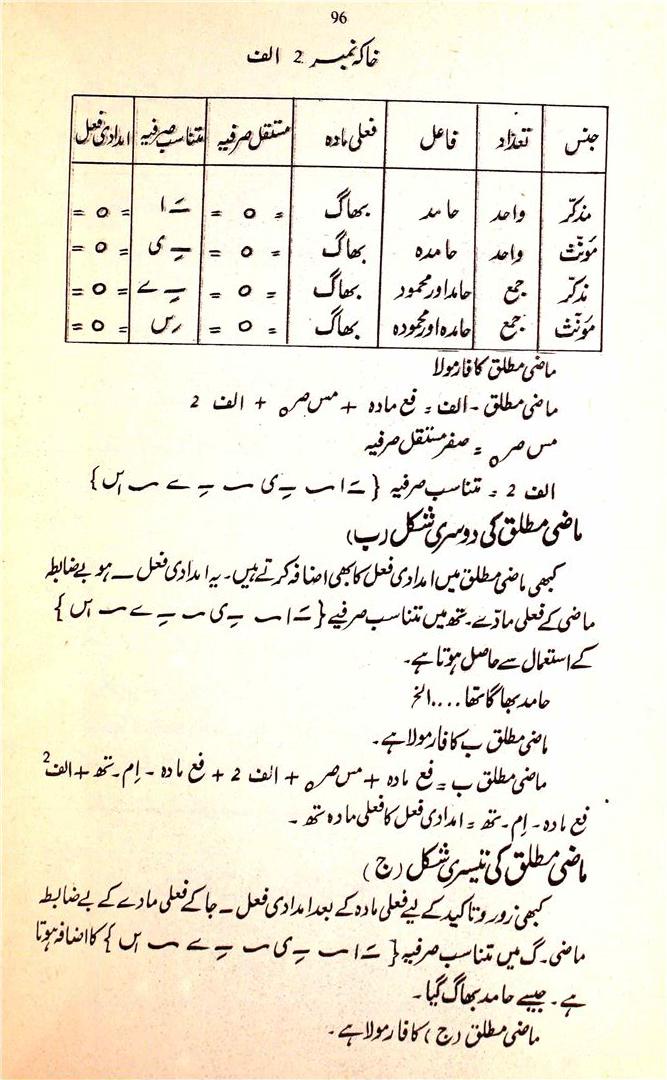 96
خاکہ نمبر 2 الف
جنس تعداد فاعل فعلی مادہ مستقل صرفیہ متناسب صرفیہ امدادی فعل
مذکر واحد حامد بھاگ = ٥ = ـَ ا = ٥ =
مونث واحد حامدہ بھاگ = ٥ = ـِ ی = ٥ =
مذکر جمع حامد اور محمود بھاگ = ٥ = ـِ ے = ٥ =
مونث جمع حامدہ اور محمودہ بھاگ = ٥ = = ٥ =
ماضی مطلق کا فارمولا
ماضی مطلق - الف = فع مادہ + مس صر٥ + الف 2
مس صر٥ = صفر مستقل صرفیہ
الف 2 = متناسب صرفیہ { ـَ ا ـــ ـِ ی ـــ ـِ ے ـــ اں }
ماضی مطلق کی دوسری شکل (ب)
کبھی ماضی مطلق میں امدادی فعل کا بھی اضافہ کرتے ہیں۔ یہ امدادی فعل ــ ہو بے ضابطہ
ماضی کے فعلی مادّے۔ تھ میں متناسب صرفیے { ـَ ا ـــ ـِ ی ـــ ـِ ے ـــ اں }
کے استعمال سے حاصل ہوتا ہے۔
حامد بھاگا تھا .... الخ
ماضی مطلق ب کا فارمولا ہے۔
ماضی مطلق ب = فع مادہ + مس صر٥ + الف 2 + فع مادہ - اِم۔ تھ + الف2
فع مادہ - اِم۔ تھ = امدادی فعل کا فعلی مادہ تھ۔
ماضی مطلق کی تیسری شکل (ج)
کبھی زور و تاکید کے لیے فعلی مادہ کے بعد امدادی فعل ــ جا کے فعلی مادے کے بے ضابطہ
ماضی۔ گ میں متناسب صرفیہ { ـَ ا ـــ ـِ ی ـــ ـِ ے ـــ اں } کا اضافہ ہوتا
ہے۔ جیسے حامد بھاگ گیا۔
ماضی مطلق (ج) کا فارمولا ہے۔